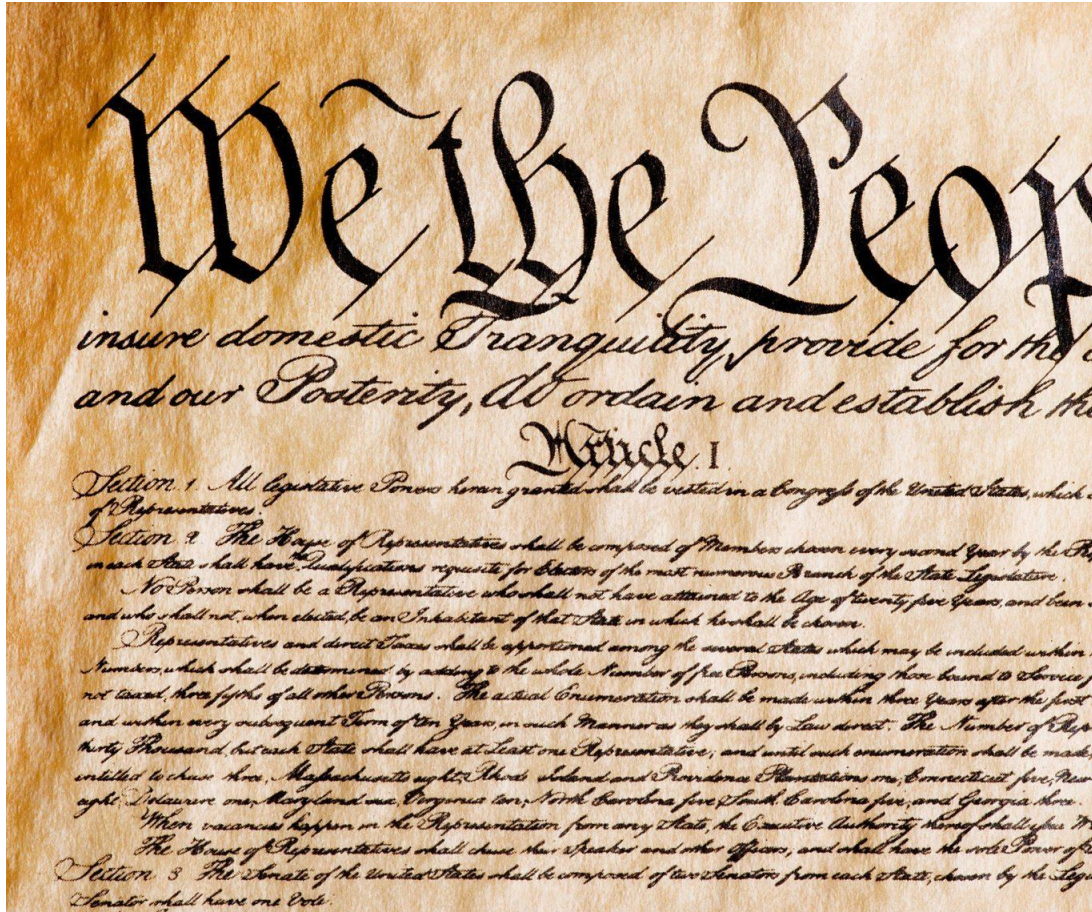 We the Peop
insure domestic Tranquility, provide for the
and our Posterity, do ordain and establish th
Article. I.
Section. 1. All legislative Powers herein granted shall be vested in a Congress of the United States, which
of Representatives.
Section. 2. The House of Representatives shall be composed of Members chosen every second Year by the
in each State shall have the Qualifications requisite for Electors of the most numerous Branch of the State Legislature.
No Person shall be a Representative who shall not have attained to the Age of twenty five Years, and been
and who shall not, when elected, be an Inhabitant of that State in which he shall be chosen.
Representatives and direct Taxes shall be apportioned among the several States which may be included within
Numbers, which shall be determined by adding to the whole Number of free Persons, including those bound to Service
not taxed, three fifths of all other Persons. The actual Enumeration shall be made within three Years after the first
and within every subsequent Term of ten Years, in such Manner as they shall by Law direct. The Number of Rep
thirty Thousand, but each State shall have at Least one Representative; and until such enumeration shall be made,
entitled to chuse three, Massachusetts eight, Rhode Island and Providence Plantations one, Connecticut five, New
eight, Delaware one, Maryland six, Virginia ten, North Carolina five, South Carolina five, and Georgia three
When vacancies happen in the Representation from any State, the Executive Authority thereof shall issue
The House of Representatives shall chuse their Speaker and other Officers; and shall have the sole Power of
Section. 3. The Senate of the United States shall be composed of two Senators from each State, chosen by the Leg
Senator shall have one Vote.